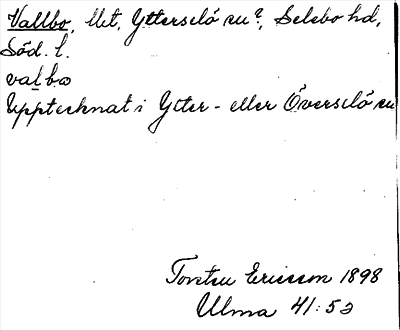 Vallbo, llt, Ytterselö sn?, Selebo hd,
Söd. l.
valbo
Upptecknat i Ytter- eller Överselö sn
Torsten Ericsson 1898
Ulma 41:52